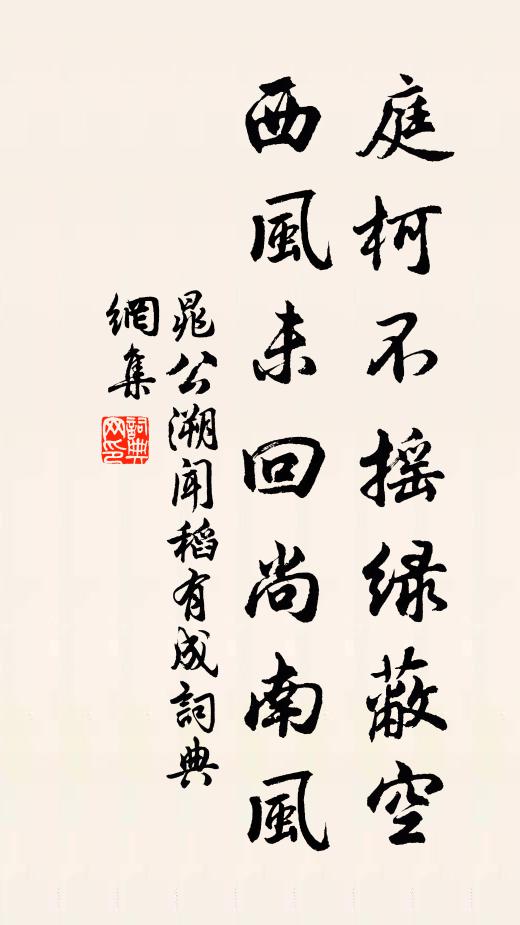 庭柯不摇緑蔽空
西風未回尚南風
晁公溯聞稻有成詞典
網集
詞典
网印